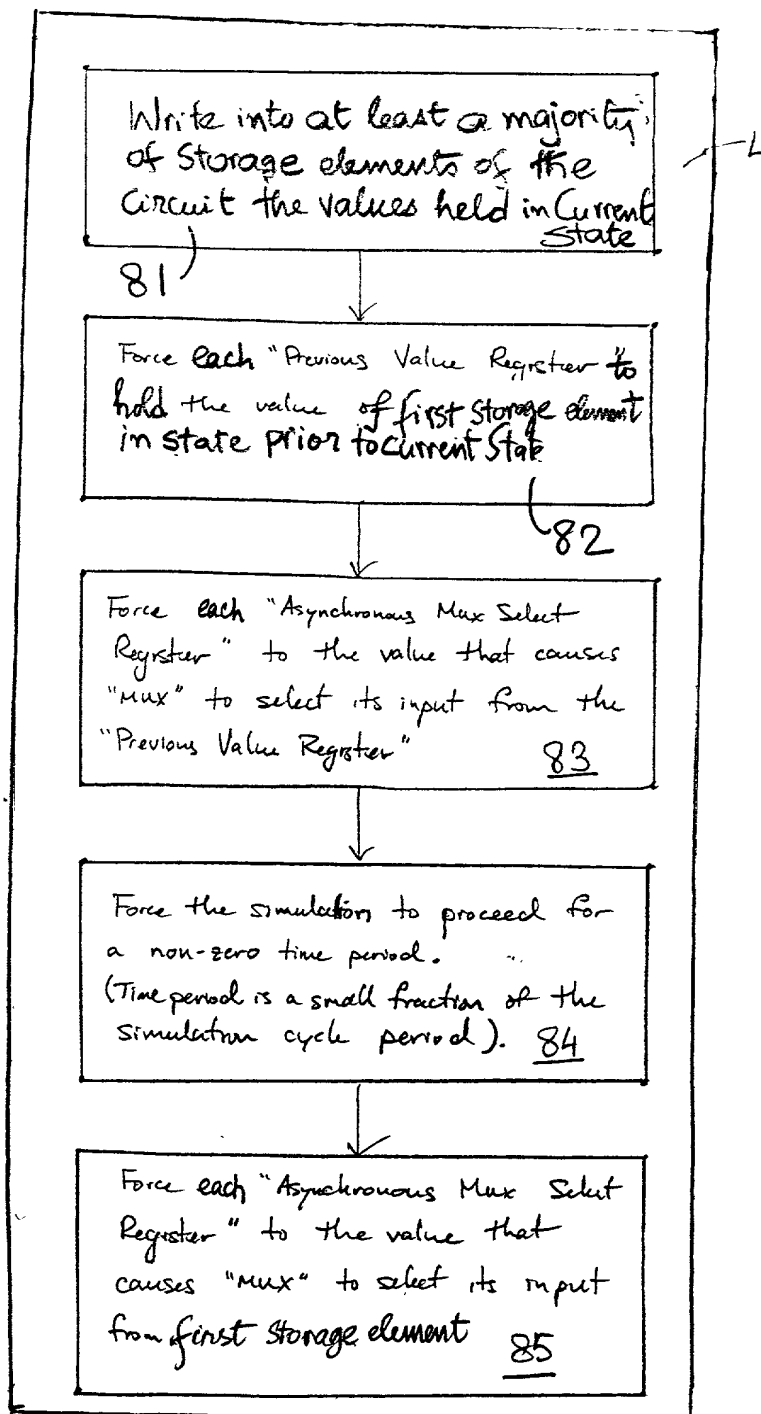 Write into at least a majority
of Storage elements of the
Circuit the values held in Current
State
81
Force each "Previous Value Register" to
hold the value of first storage element
in state prior to current State
82
Force each "Asynchronous Mux Select
Register" to the value that causes
"Mux" to select its input from the
"Previous Value Register"
83
Force the simulation to proceed for
a non-zero time period.
(Time period is a small fraction of the
simulation cycle period).
84
Force each "Asynchronous Mux Select
Register" to the value that
causes "Mux" to select its input
from first storage element
85